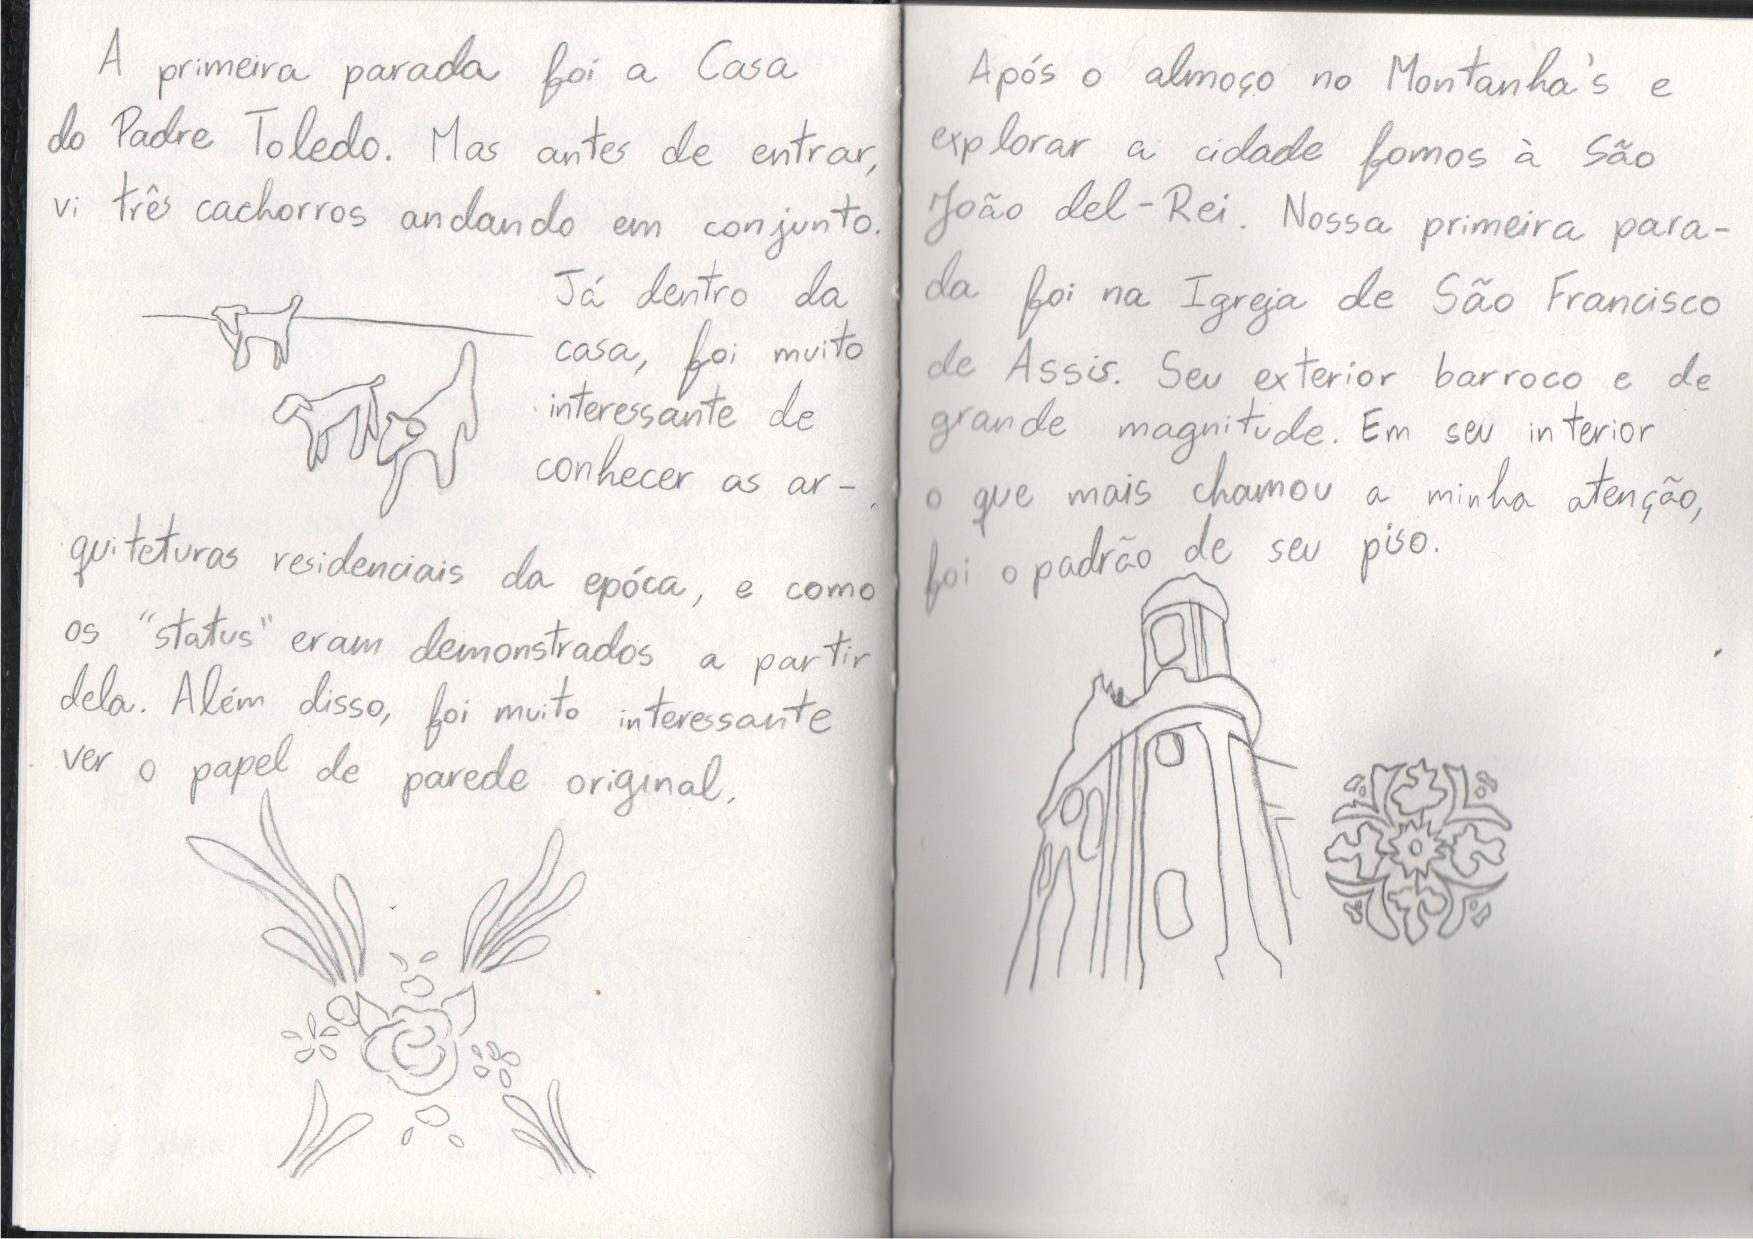 A primeira parada foi a Casa
do Padre Toledo. Mas antes de entrar,
vi três cachorros andando em conjunto.
Já dentro da
casa, foi muito
interessante de
conhecer as ar-
quiteturas residenciais da epóca, e como
os "status" eram demonstrados a partir
dela. Além disso, foi muito interessante
ver o papel de parede original.
Após o almoço no Montanha's e
explorar a cidade fomos à São
João del-Rei. Nossa primeira para-
da foi na Igreja de São Francisco
de Assis. Seu exterior barroco e de
grande magnitude. Em seu interior
o que mais chamou a minha atenção,
foi o padrão de seu piso.